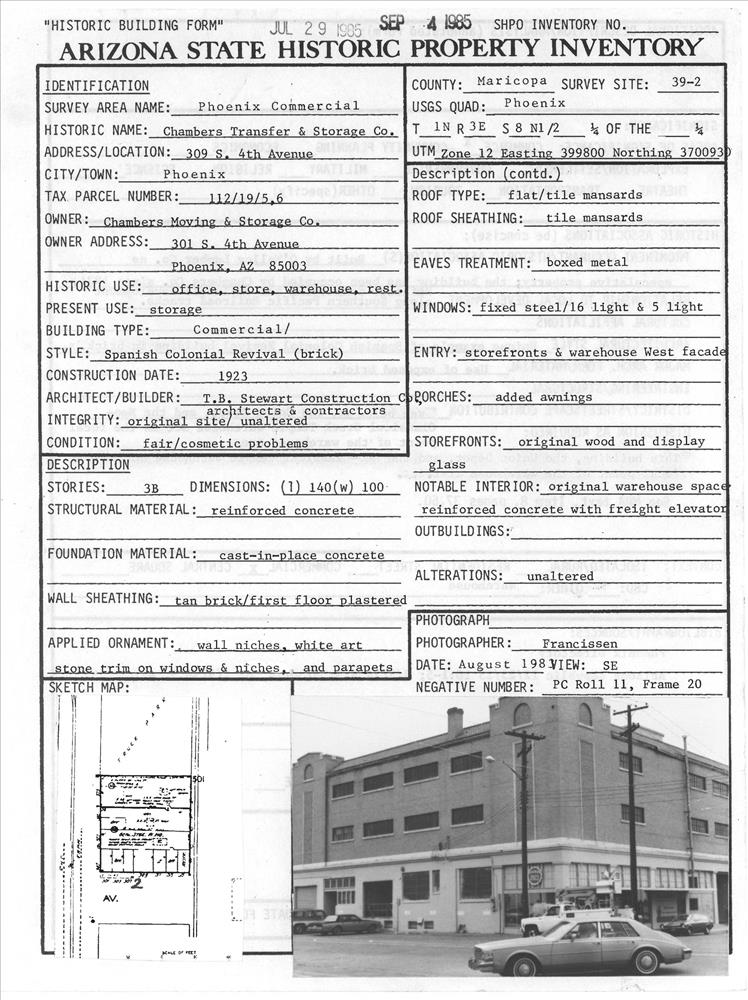 "HISTORIC BUILDING FORM" JUL 29 1985 SEP -4 1985 SHPO INVENTORY NO.
ARIZONA STATE HISTORIC PROPERTY INVENTORY
IDENTIFICATION
SURVEY AREA NAME: Phoenix Commercial
HISTORIC NAME: Chambers Transfer & Storage Co.
ADDRESS/LOCATION: 309 S. 4th Avenue
CITY/TOWN: Phoenix
TAX PARCEL NUMBER: 112/19/5,6
OWNER: Chambers Moving & Storage Co.
OWNER ADDRESS: 301 S. 4th Avenue
Phoenix, AZ 85003
HISTORIC USE: office, store, warehouse, rest.
PRESENT USE: storage
BUILDING TYPE: Commercial/
STYLE: Spanish Colonial Revival (brick)
CONSTRUCTION DATE: 1923
ARCHITECT/BUILDER: T.B. Stewart Construction Co.
architects & contractors
INTEGRITY: original site/ unaltered
CONDITION: fair/cosmetic problems
DESCRIPTION
STORIES: 3B DIMENSIONS: (l) 140(w) 100
STRUCTURAL MATERIAL: reinforced concrete
FOUNDATION MATERIAL: cast-in-place concrete
WALL SHEATHING: tan brick/first floor plastered
APPLIED ORNAMENT: wall niches, white art
stone trim on windows & niches, and parapets
COUNTY: Maricopa SURVEY SITE: 39-2
USGS QUAD: Phoenix
T 1N R 3E S 8 N1/2 ¼ OF THE ¼
UTM Zone 12 Easting 399800 Northing 3700930
Description (contd.)
ROOF TYPE: flat/tile mansards
ROOF SHEATHING: tile mansards
EAVES TREATMENT: boxed metal
WINDOWS: fixed steel/16 light & 5 light
ENTRY: storefronts & warehouse West facade
PORCHES: added awnings
STOREFRONTS: original wood and display
glass
NOTABLE INTERIOR: original warehouse space
reinforced concrete with freight elevator
OUTBUILDINGS:
ALTERATIONS: unaltered
PHOTOGRAPH
PHOTOGRAPHER: Francissen
DATE: August 1983 VIEW: SE
NEGATIVE NUMBER: PC Roll 11, Frame 20
SKETCH MAP:
TRUCK PARK
501
2
AV.
SCALE OF FEET